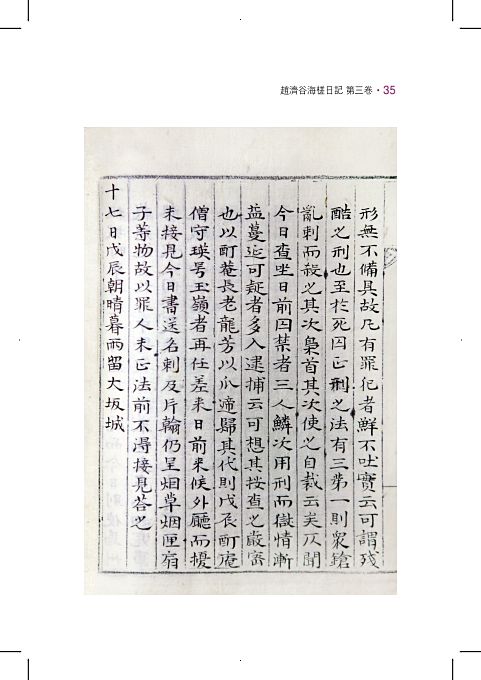 趙濟谷海槎日記 第三卷 • 35
形無不備具故凡有罪犯者鮮不吐實云可謂殘
酷之刑也至於死囚正刑之法有三第一則衆鎗
亂刺而殺之其次梟首其次使之自裁云矣仄聞
今日查坐日前囚禁者三人鱗次用刑而獄情漸
益蔓延可疑者多入逮捕云可想其按查之嚴密
也以酊菴長老龍芳以瓜遞歸其代則戊辰酊菴
僧守瑛号玉嶺者再任差来日前来候外廳而擾
未接見今日書送名刺及片翰仍呈烟草烟匣扇
子等物故以罪人未正法前不得接見荅之
十七日戊辰朝晴暮雨留大坂城